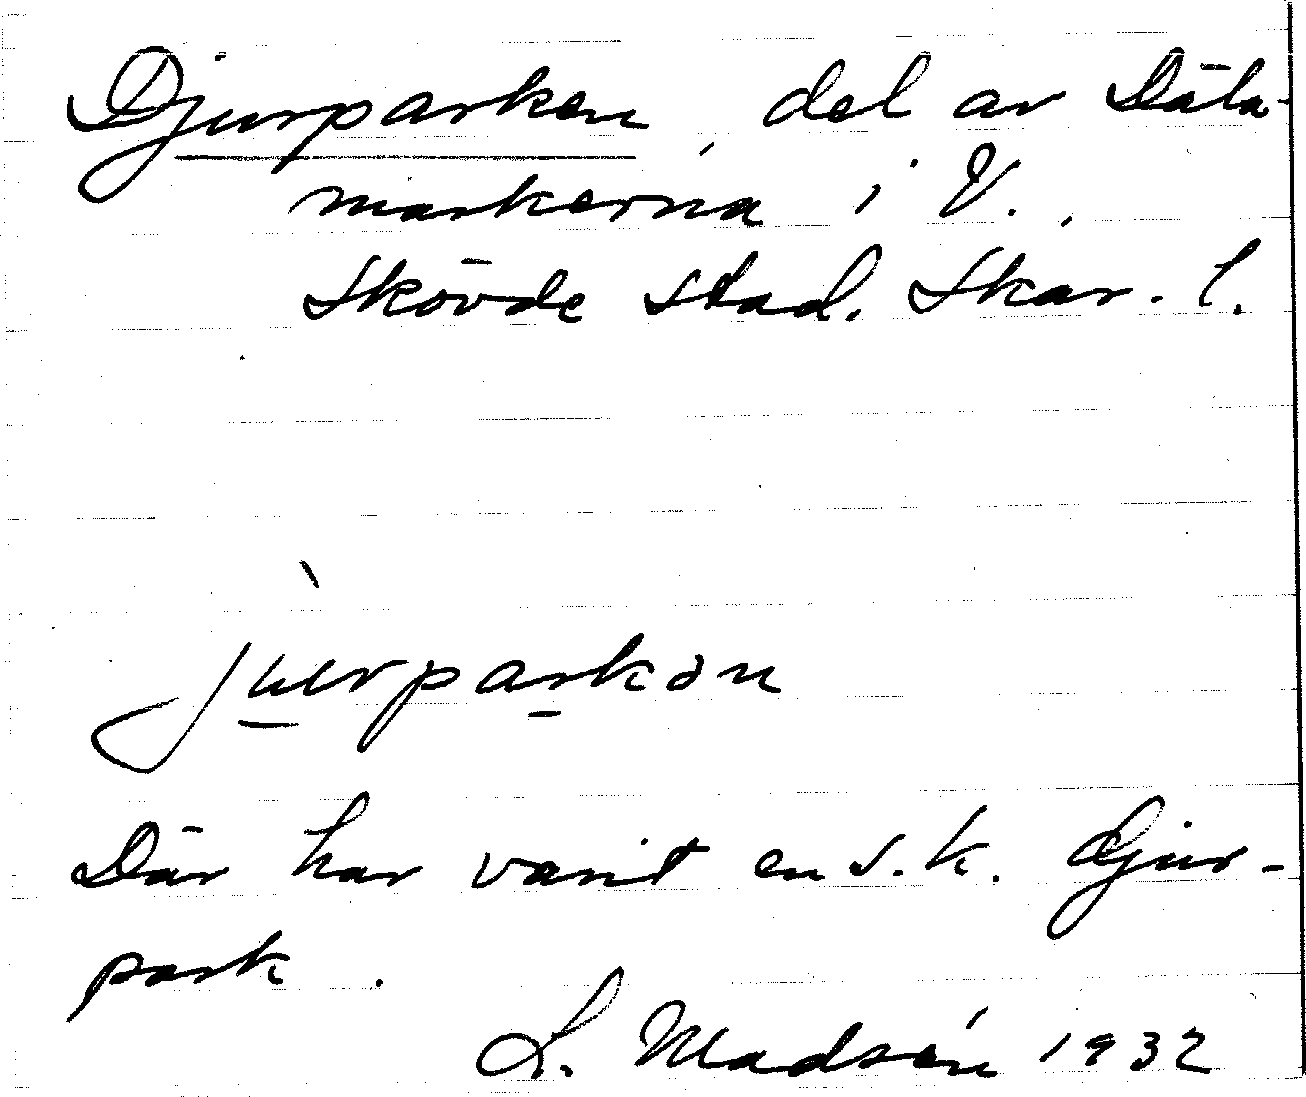 Djurparken, del av Däla-
markerna i V.,
Skövde stad. Skar. l.
jùrparkən
Där har varit en s.k. djur-
park.
L. Madsén 1932